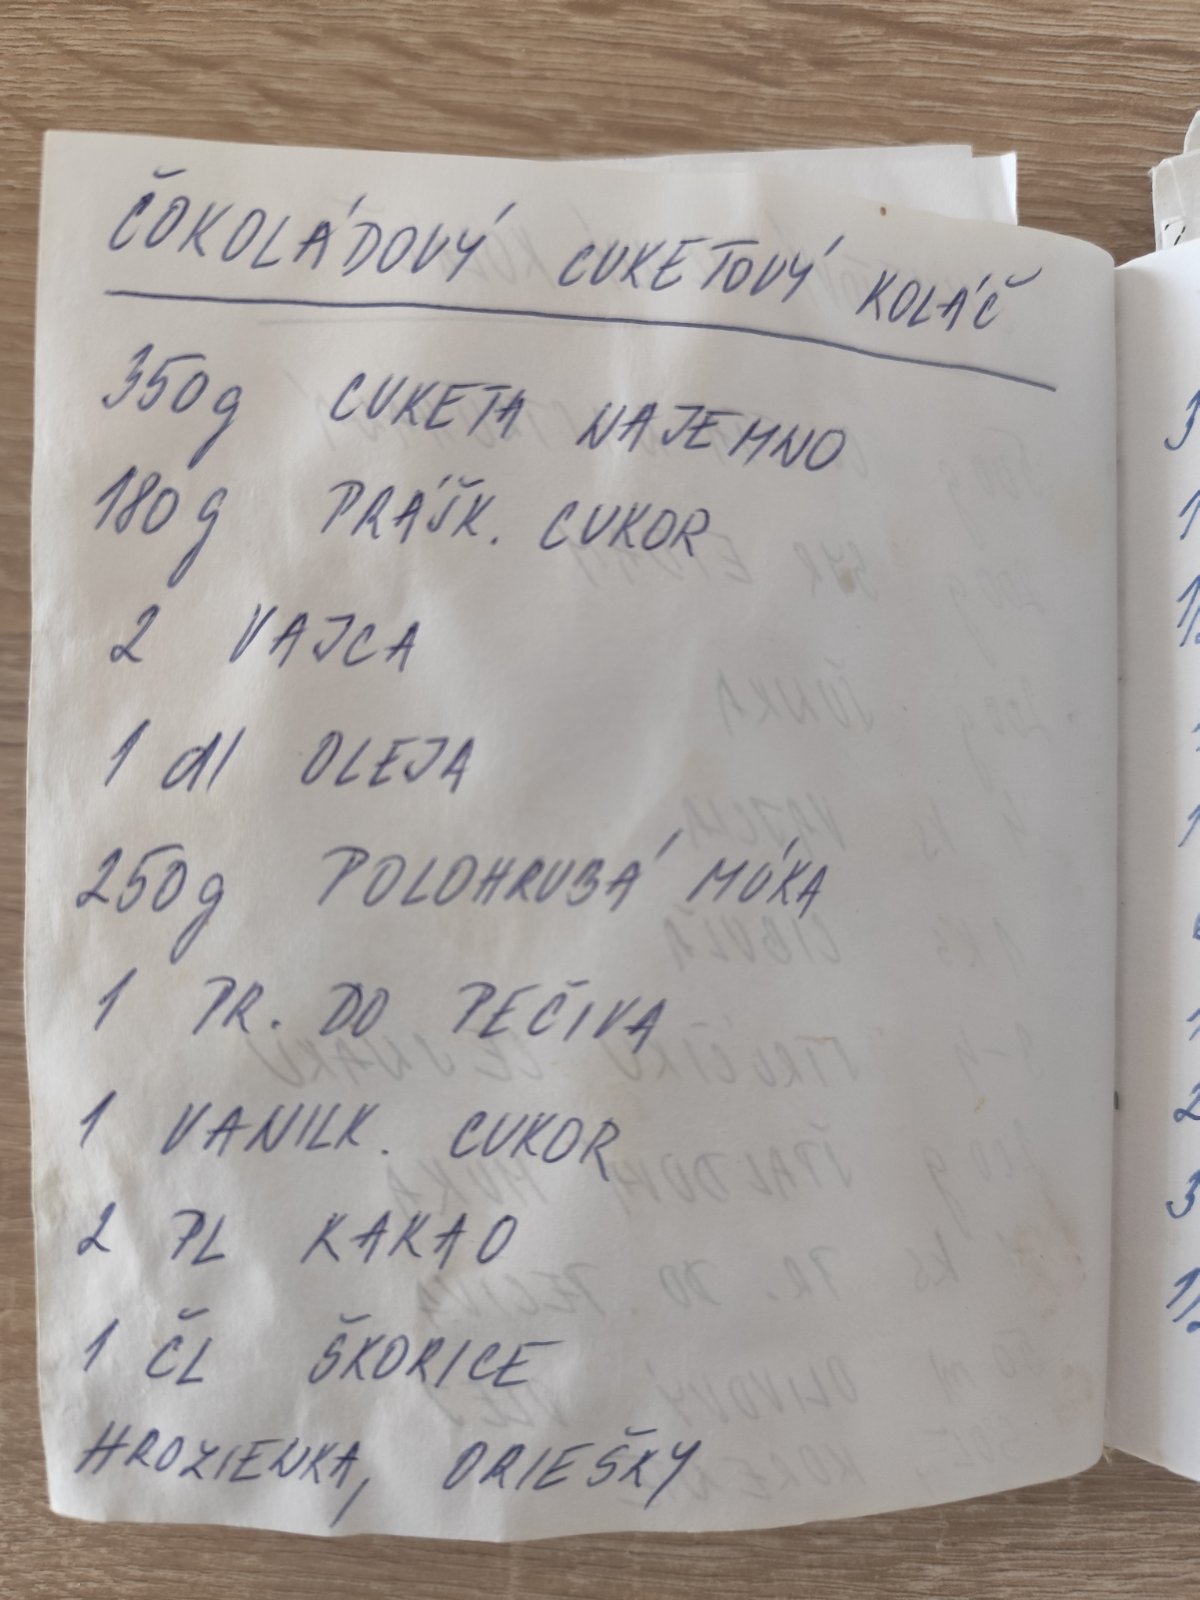 ČOKOLÁDOVÝ CUKETOVÝ KOLÁČ
350g CUKETA NAJEMNO
180g PRÁŠK. CUKOR
2 VAJCA
1 dl OLEJA
250g POLOHRUBÁ MÚKA
1 PR. DO PEČIVA
1 VANILK. CUKOR
2 PL KAKAO
1 ČL ŠKORICE
HROZIENKA, ORIEŠKY